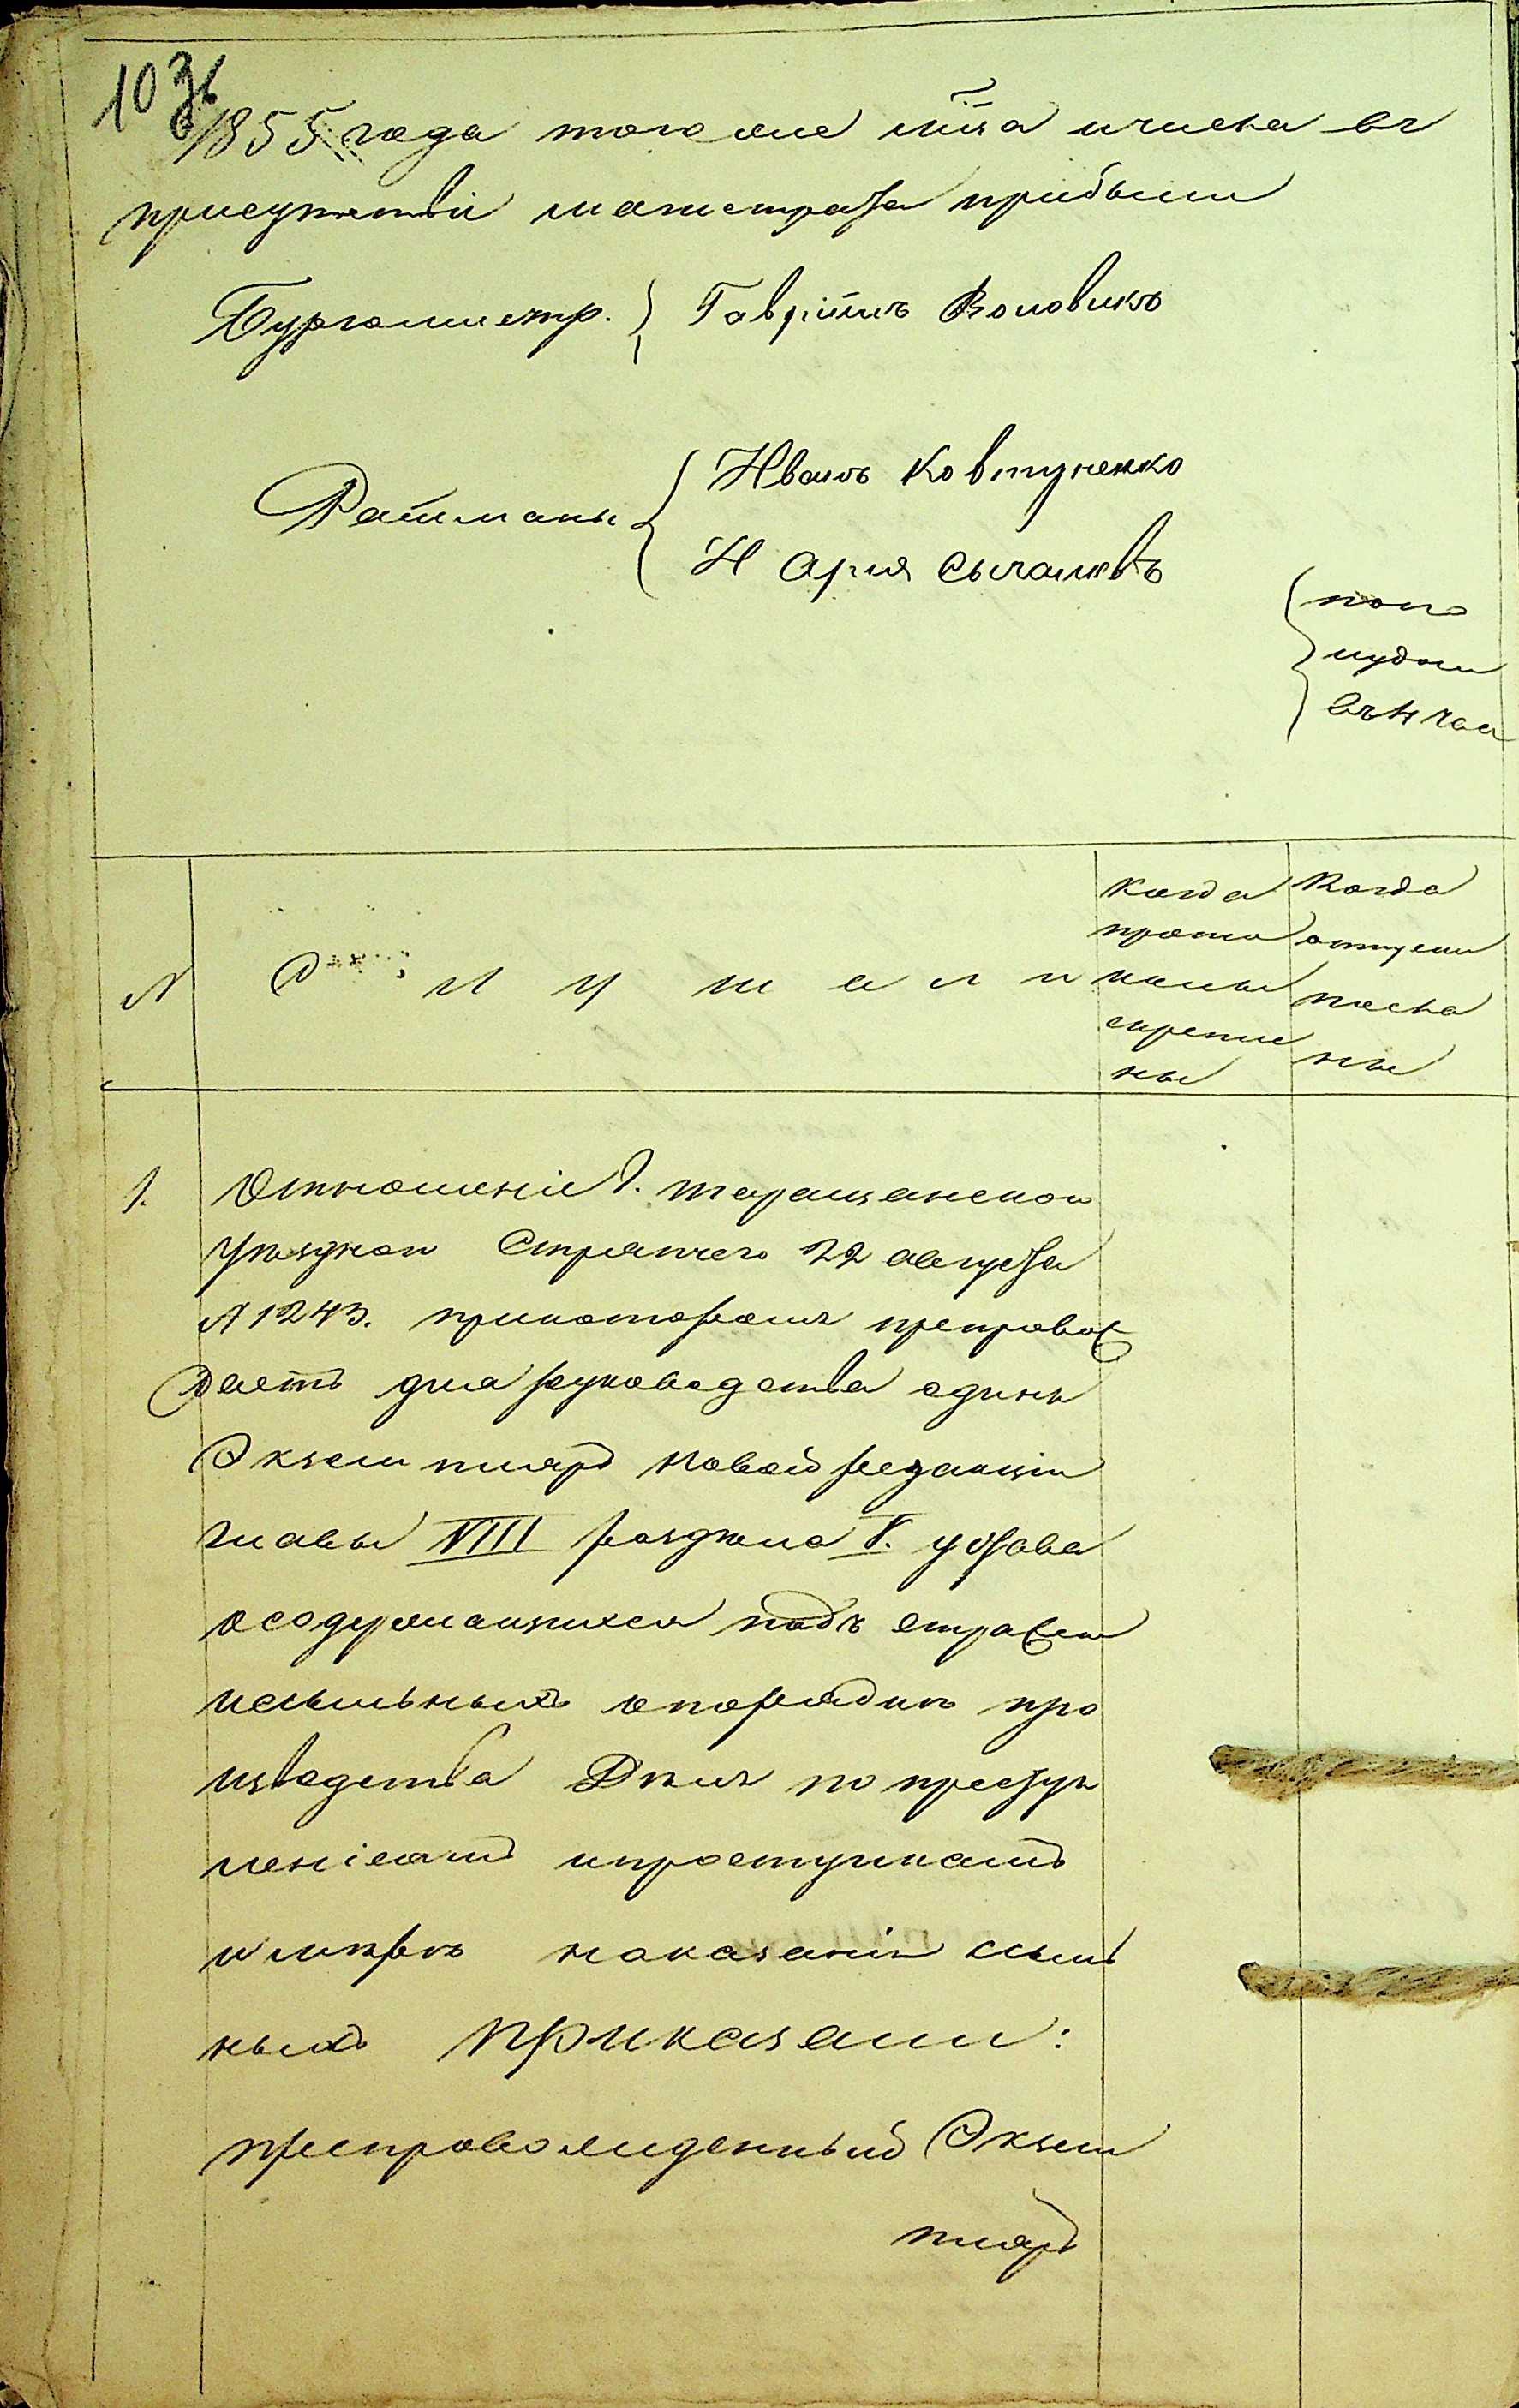 103
1855 года того же м̃ца и числа въ
присутствіи магистрата прибыли
Бургомистр. Гавріилъ Воловикъ
Ратманы Иванъ Ковтуненко
И
попо
лудни
въ 4 часа
N
С л у ш а л и
Когда
прото
колы
скрепле
ны
Когда
отпуски
посла
ны
1. Отношеніе Г. Таращанского
Уѣздного Стряпчего 22 августа
N 1243. при котором препровож
даетъ для руководства одинъ
Экземпляръ новой редакціи
главы VIII раздѣла V. устава
о содержащихся подъ стражею
и ссыльныхъ о порядкѣ про
изводства Дѣлъ по преступ
леніямъ и проступкамъ
и мѣрѣ наказаній ссыль
ныхъ Приказали:
препровожденный Экзем
пляръ